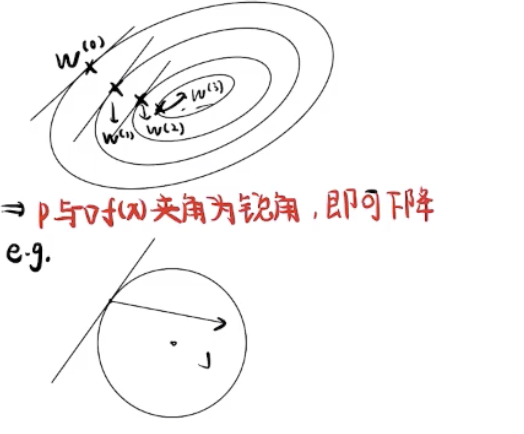 w⁽⁰⁾
w⁽¹⁾
w⁽²⁾
w⁽³⁾
⇒ p与∇f(x)夹角为锐角,即可下降
e.g.
J